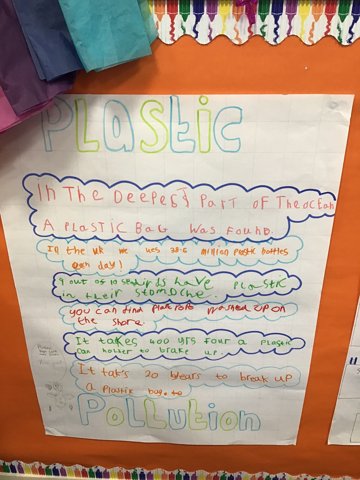 Plastic
In The Deepest Part of The ocean
A Plastic Bag was Found.
In the UK we ues 38.5 million plastic bottles
evah day!
9 out of 10 have Plastic
in their stomache.
you can find washed up on
the shore.
It takes 400 yrs four a plastic
can holter to brake up.
It tat's 20 years to break up
a plastik bag.
Pollution